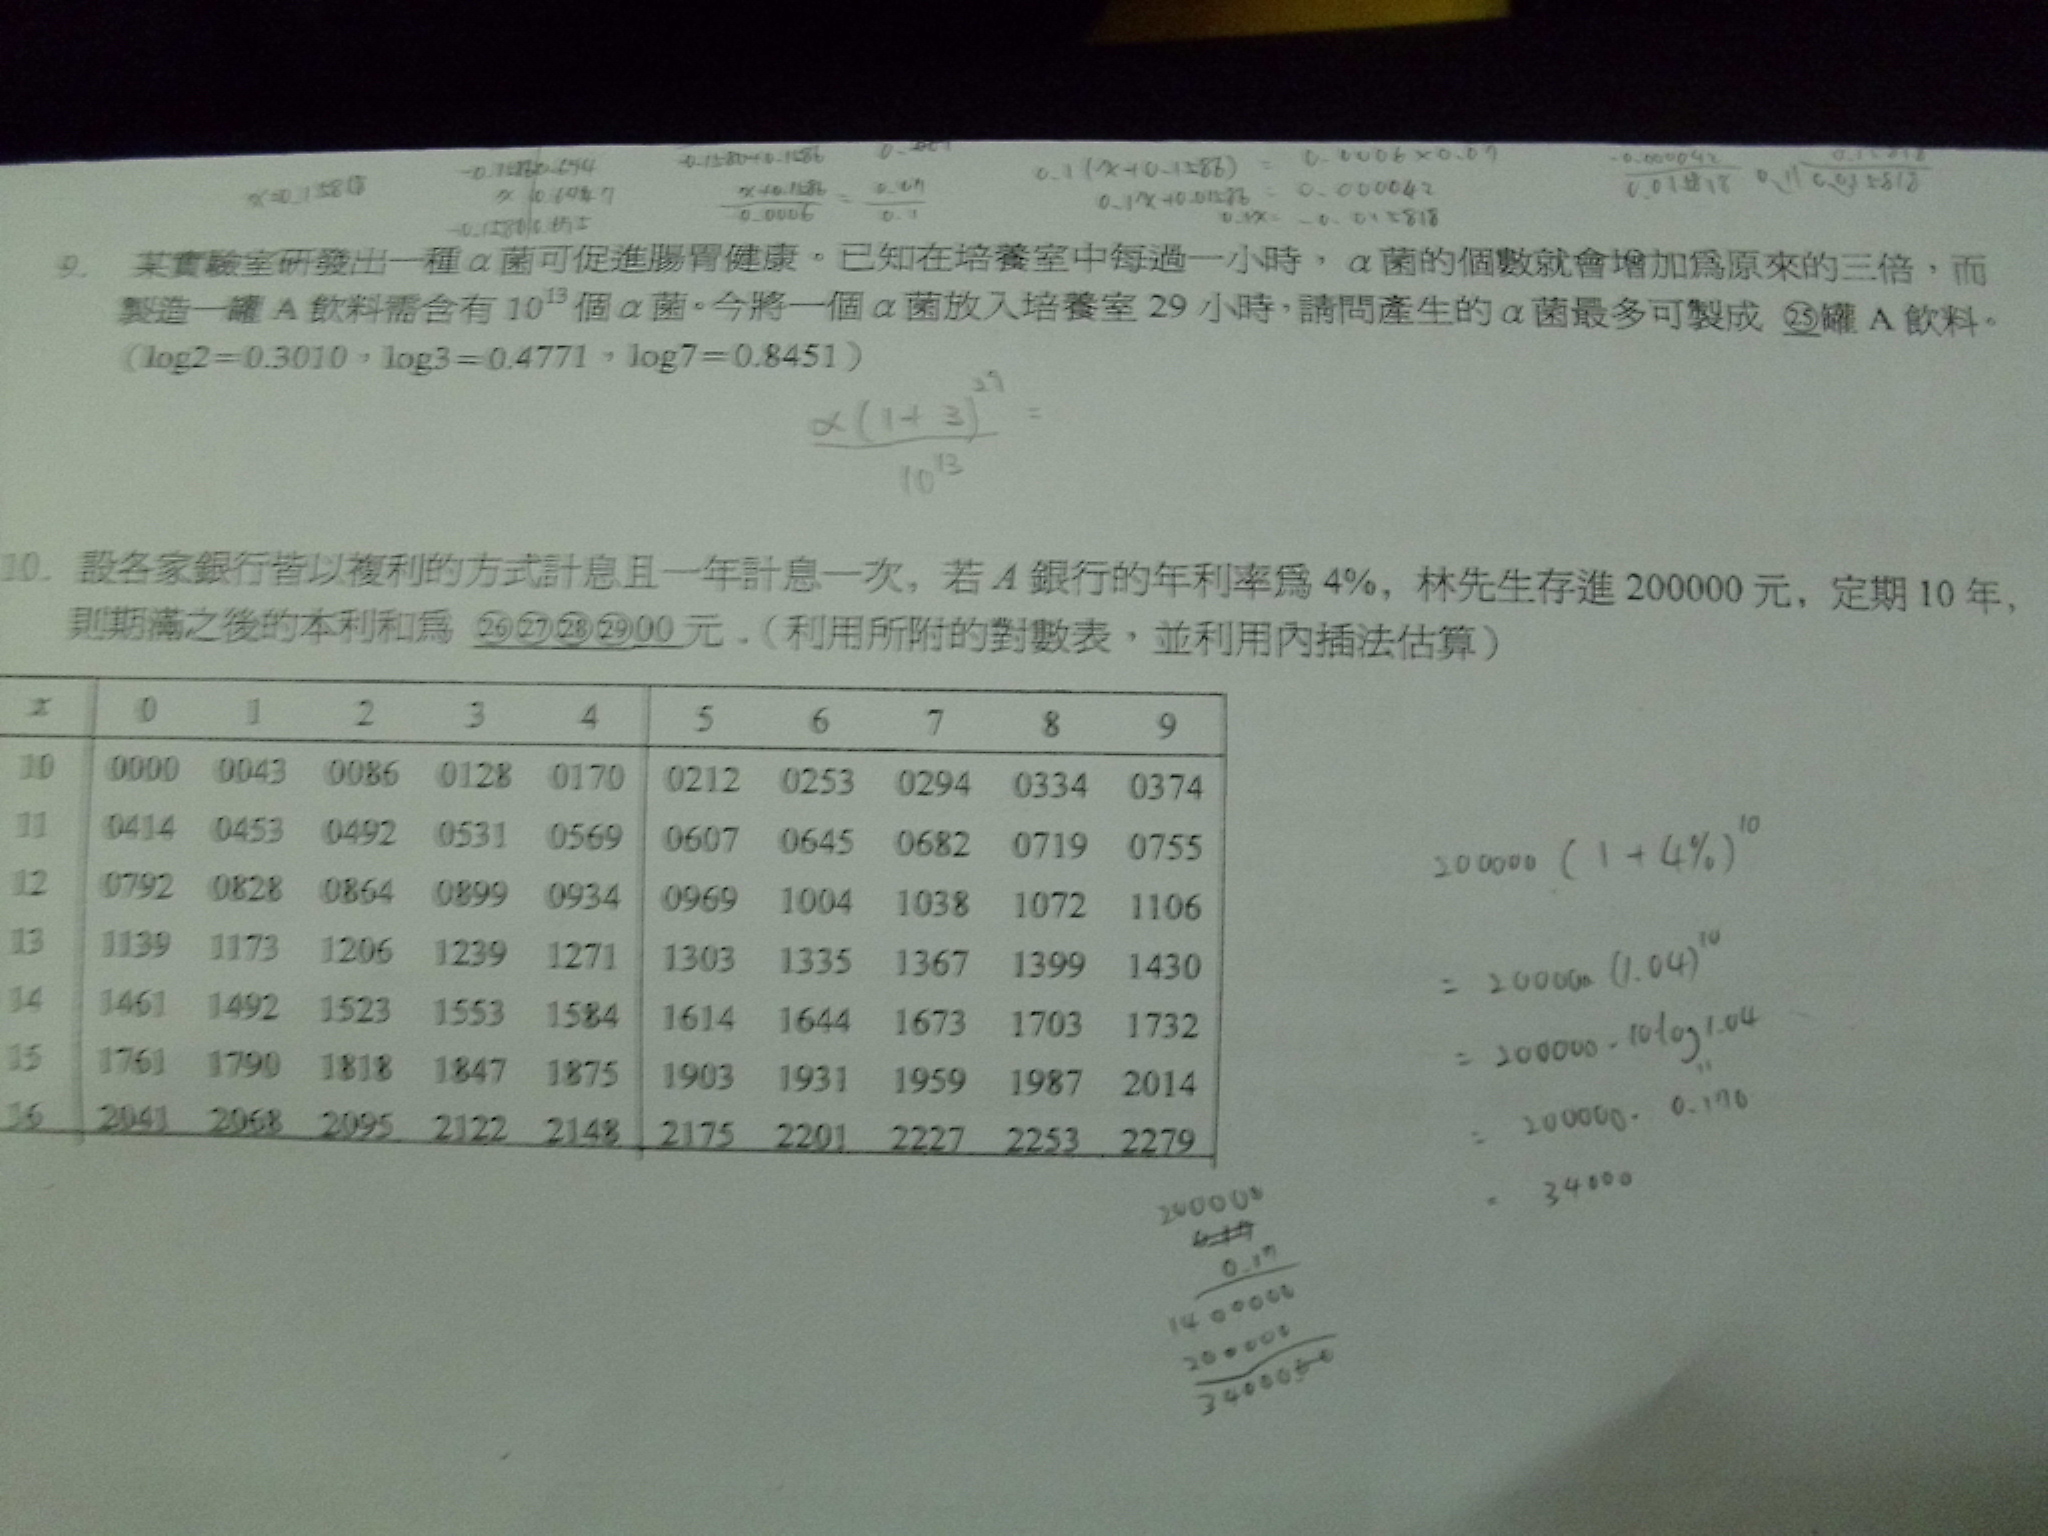 x=0.15818
0.1(x+0.1586) = 0.0006×0.07
x+0.1586 / 0.0006 = 0.07 / 0.1
0.1x+0.01586 = 0.000042
0.1x = -0.015818
9. 某實驗室研發出一種α菌可促進腸胃健康。已知在培養室中每過一小時，α菌的個數就會增加為原來的三倍，而
製造一罐 A 飲料需含有 10¹³ 個α菌。今將一個α菌放入培養室 29 小時，請問產生的α菌最多可製成 ㉕罐 A 飲料。
（log2＝0.3010，log3＝0.4771，log7＝0.8451）
α(1+3)²⁹ =
10¹³
10. 設各家銀行皆以複利的方式計息且一年計息一次，若 A 銀行的年利率為 4%，林先生存進 200000 元，定期 10 年，
則期滿之後的本利和為 ㉖㉗㉘㉙00 元．（利用所附的對數表，並利用內插法估算）
x 0 1 2 3 4 5 6 7 8 9
10 0000 0043 0086 0128 0170 0212 0253 0294 0334 0374
11 0414 0453 0492 0531 0569 0607 0645 0682 0719 0755
12 0792 0828 0864 0899 0934 0969 1004 1038 1072 1106
13 1139 1173 1206 1239 1271 1303 1335 1367 1399 1430
14 1461 1492 1523 1553 1584 1614 1644 1673 1703 1732
15 1761 1790 1818 1847 1875 1903 1931 1959 1987 2014
16 2041 2068 2095 2122 2148 2175 2201 2227 2253 2279
200000 (1+4%)¹⁰
= 200000 (1.04)¹⁰
= 200000．10log1.04
= 200000．0.170
= 34000
200000
0.17
1400000
200000
3400000